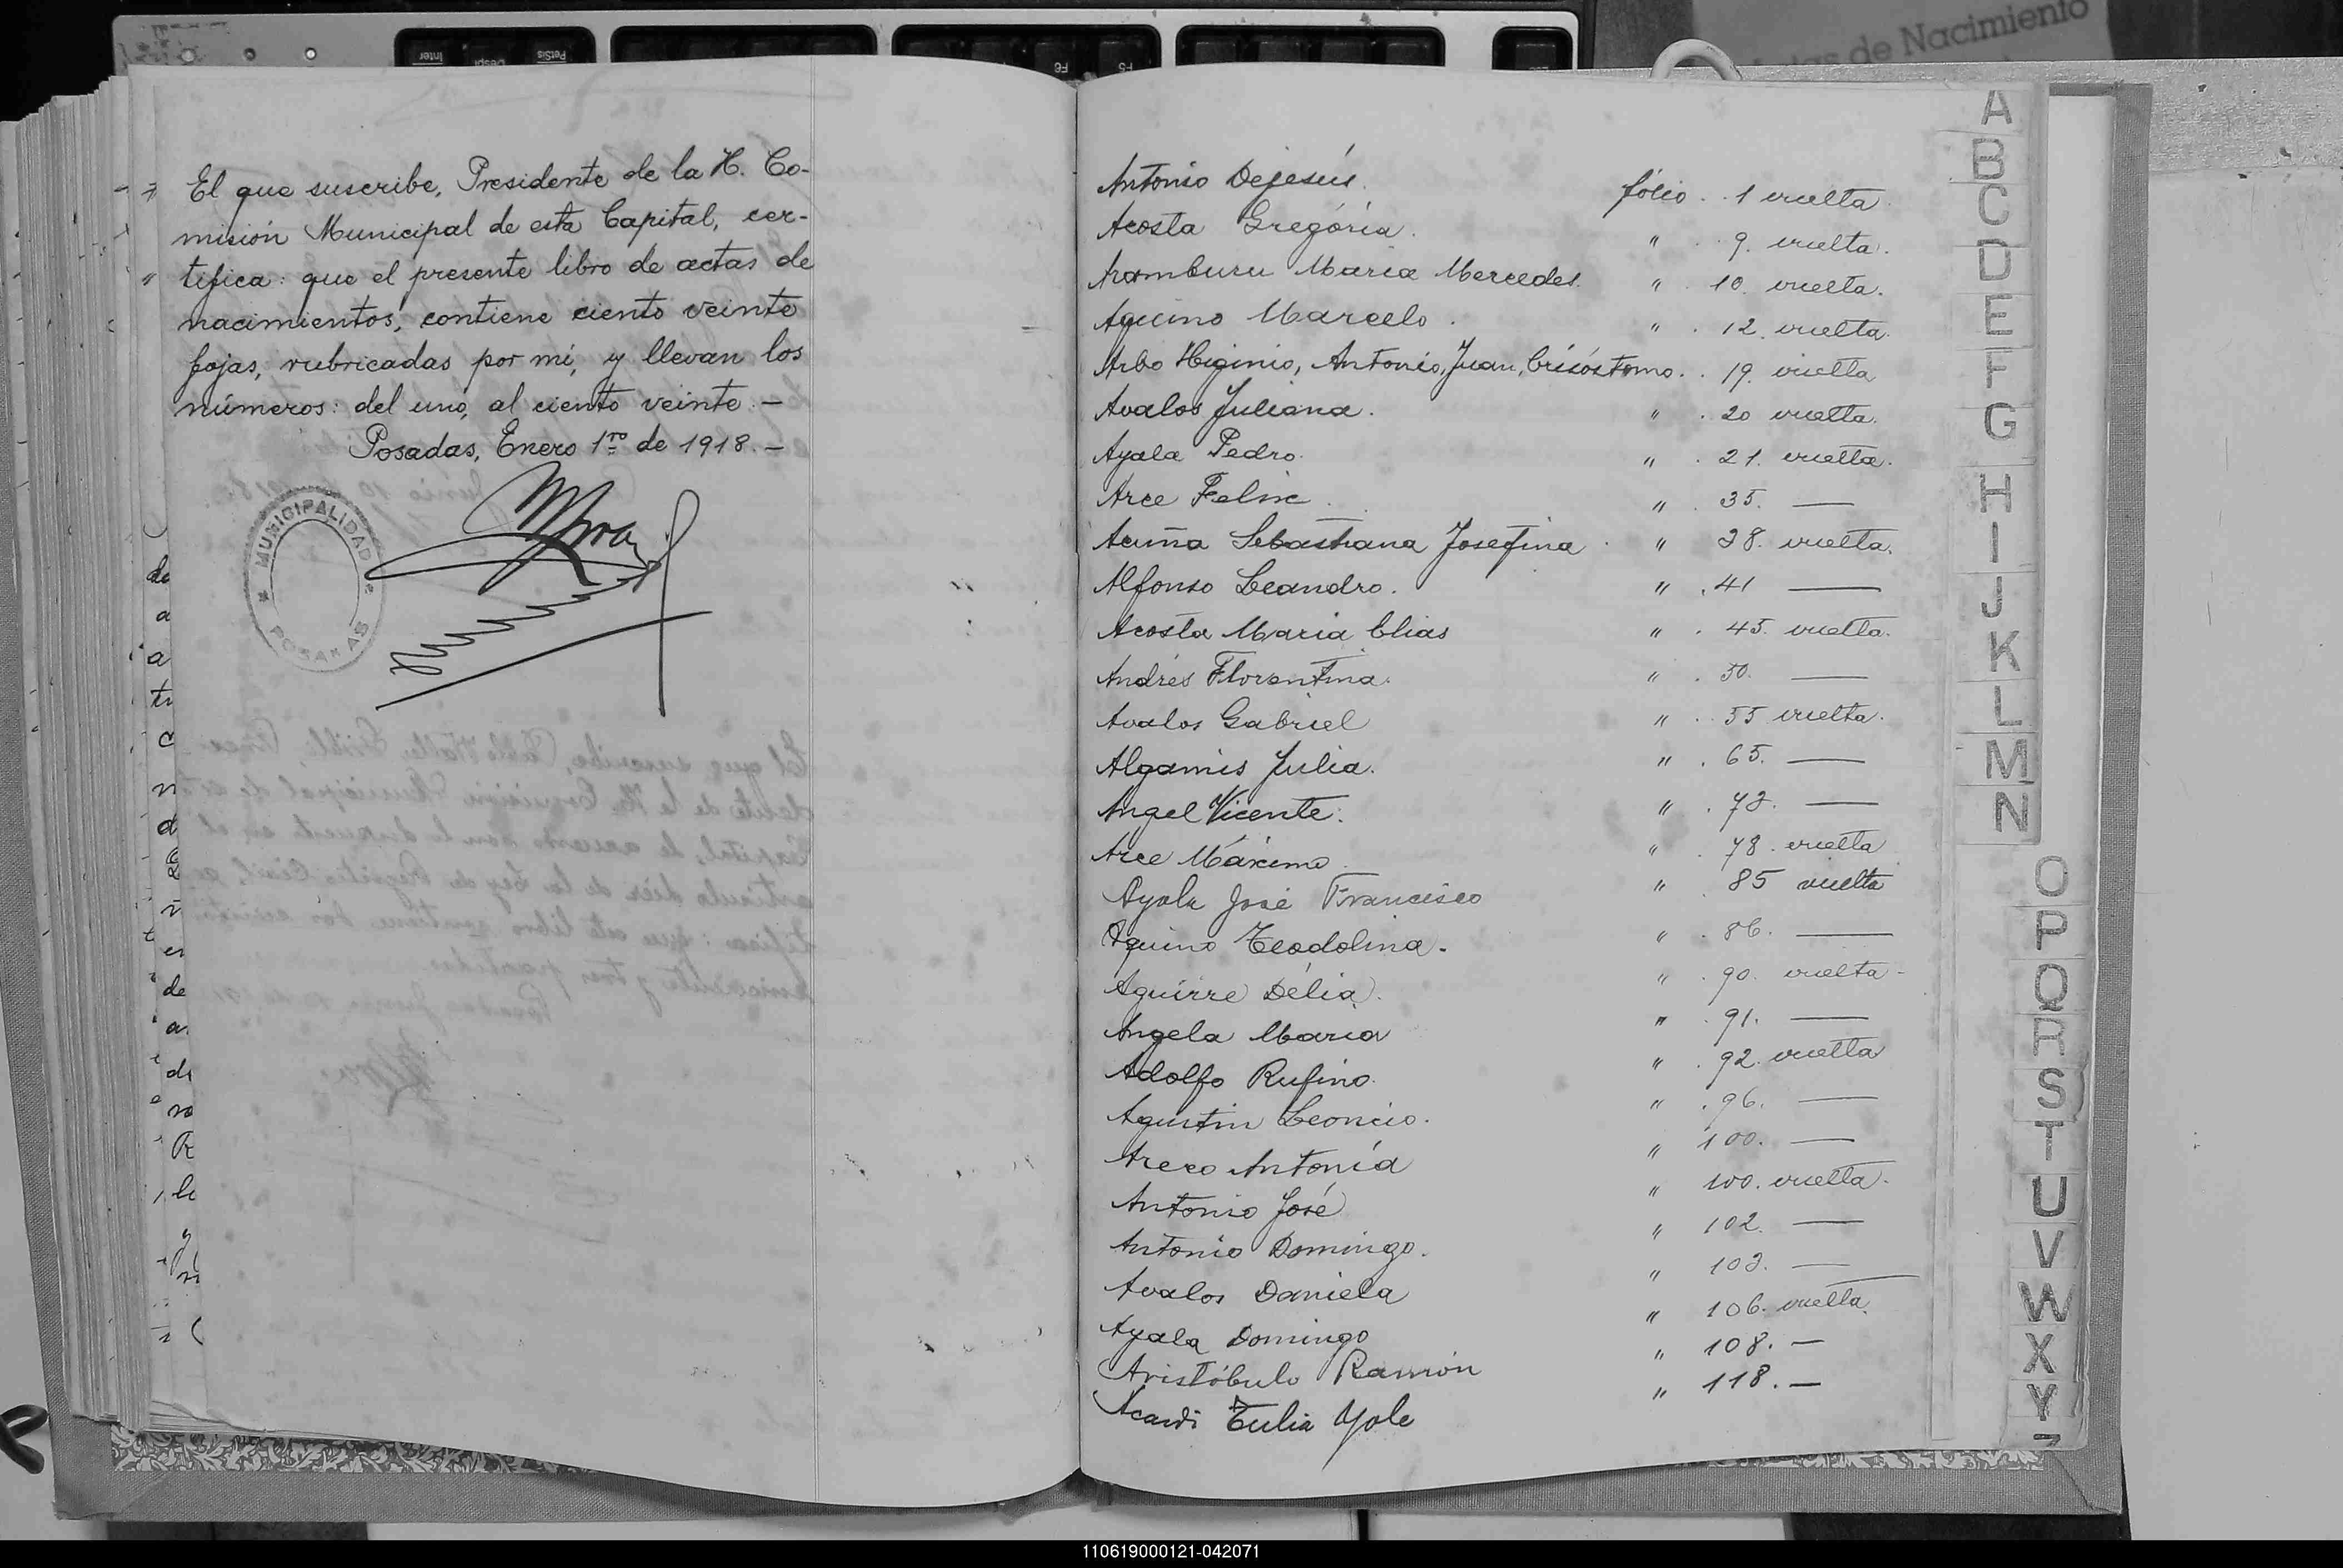 El que suscribe, Presidente de la H. Co-
misión Municipal de esta Capital, cer-
tifica: que el presente libro de actas de
nacimientos, contiene ciento veinte
fojas, rubricadas por mí, y llevan los
números: del uno, al ciento veinte. —
Posadas, Enero 1ro de 1918. —
MUNICIPALIDAD
POSADAS
Antonio Dejesús. fólio . . 1 vuelta
Acosta Gregória. " . . 9. vuelta.
Aramburu María Mercedes. " . 10. vuelta.
Aquino Marcelo. " . 12. vuelta.
Arbo Higinio, Antonio, Juan, Crisóstomo. . 19. vuelta
Avalos Juliana. " . 20 vuelta.
Ayala Pedro. " . 21. vuelta.
Arce Felisc. " . 35. —
Acuña Sebastiana Josefina " 38. vuelta.
Alfonso Leandro. " . 41 —
Acosta María Elias " . 45. vuelta.
Andrés Florentina. " . 50. —
Avalos Gabriel " . . 55 vuelta.
Algamis Julia. " . 65. —
Angel Vicente. " . 73. —
Arce Máximo. " . 78. vuelta
Ayala José Francisco " . 85 vuelta
Aquino Teodolina. " . 86. —
Aguirre Délia. " . 90. vuelta -
Angela María " . 91. —
Adolfo Rufino. " . 92. vuelta
Agustin Leoncio. " . 96. —
Antonía " 100. —
Antonio José " 100. vuelta.
Antonio Domingo. " 102. —
Avalos Daniela " 103. —
Ayala Domingo " 106. vuelta.
Aristóbulo Ramón " 108. —
Tulia Yole " 118. —
A
B
C
D
E
F
G
H
I
J
K
L
M
N
O
P
Q
R
S
T
U
V
W
X
Y
Z
de Nacimiento
110619000121-042071